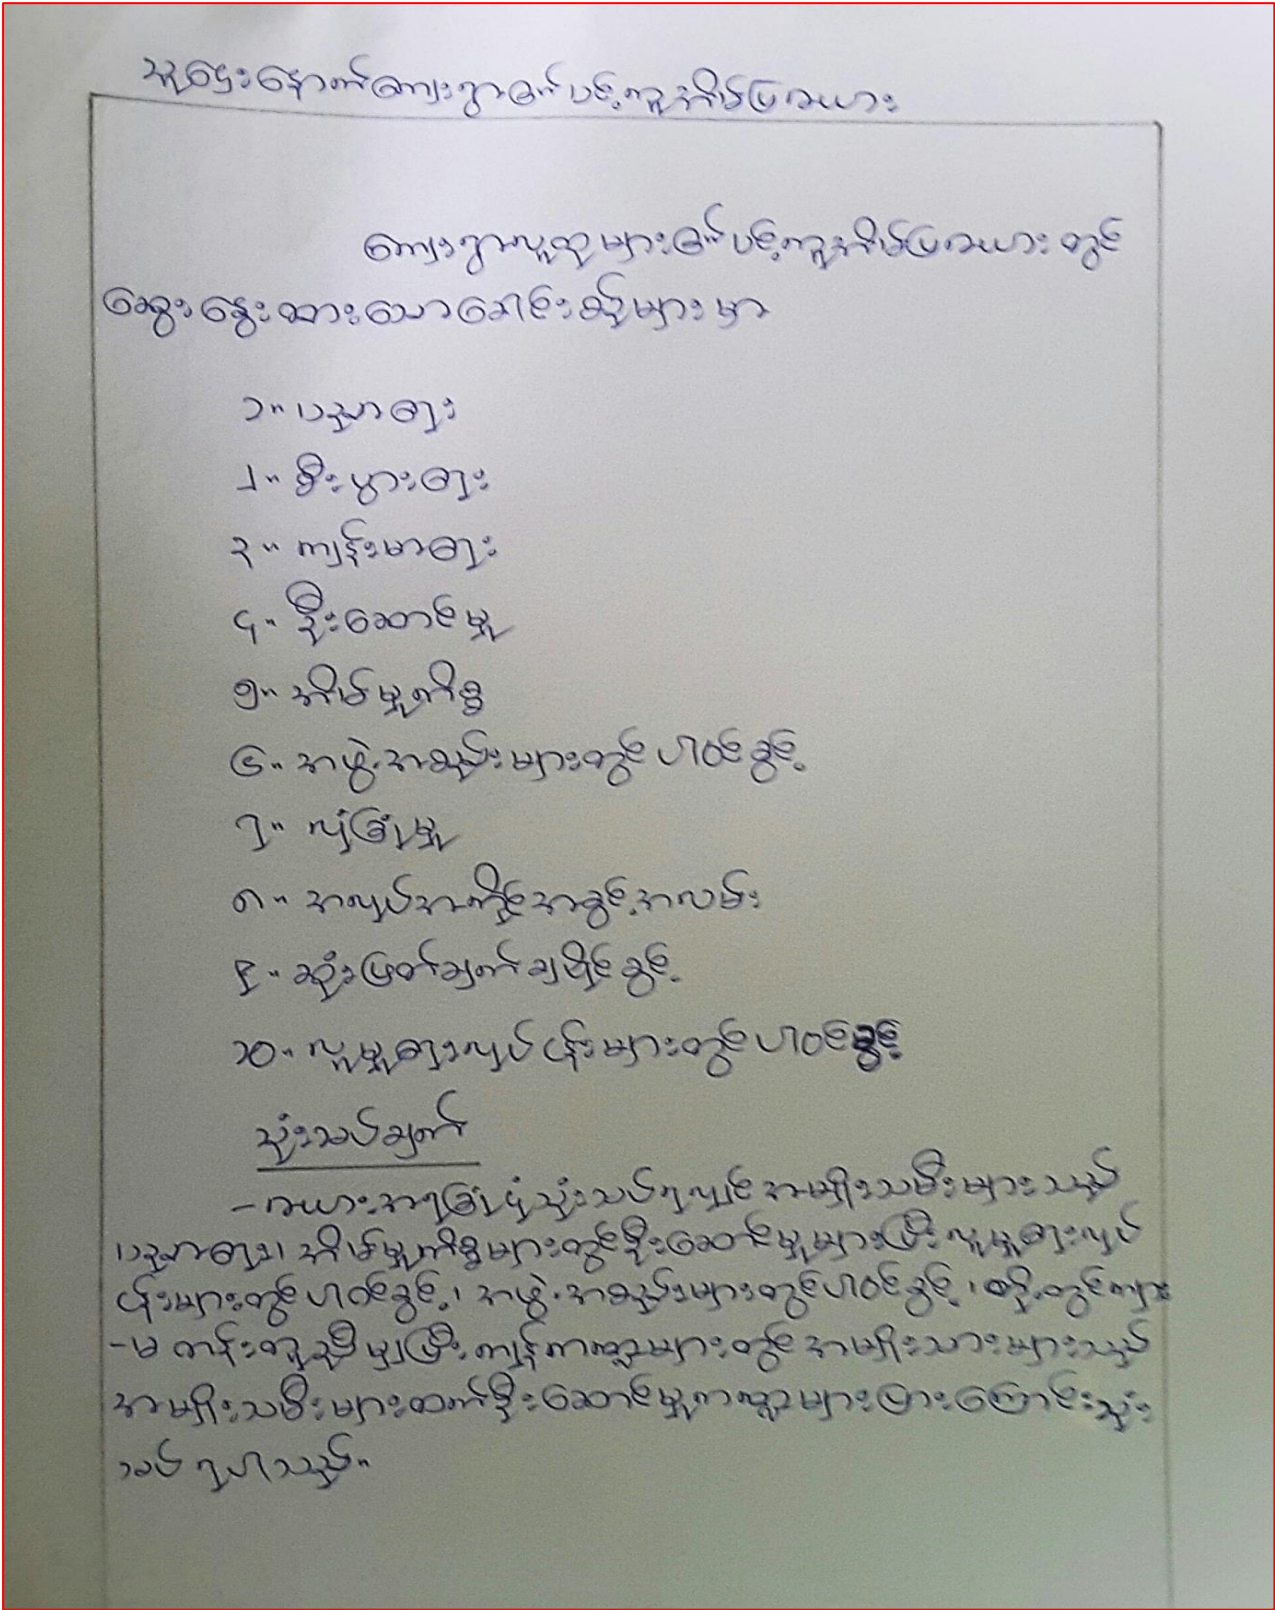 သူဌေးနောက်ကျေးရွာခင်ပင့်ကူအိမ်ပြဇယား
ကျေးရွာလူထုများခင်ပင့်ကူအိမ်ပြဇယား တွင်
ဆွေးနွေးထားသောခေါင်းစဉ်များမှာ
၁။ ပညာရေး
၂။ စီးပွားရေး
၃။ ကျန်းမာရေး
၄။ ဦးဆောင်မှု
၅။ အိမ်မှုကိစ္စ
၆။ အဖွဲ့အစည်းများတွင်ပါဝင်ခွင့်
၇။ လုံခြုံမှု
၈။ အလုပ်အကိုင်အခွင့်အလမ်း
၉။ ဆုံးဖြတ်ချက်ချပိုင်ခွင့်
၁၀။ လူမှုရေးလုပ်ငန်းများတွင်ပါဝင်ခွင့်
သုံးသပ်ချက်
- ဇယားအရခြုံငုံသုံးသပ်ရလျှင် အမျိုးသမီးများသည်
ပညာရေး၊ အိမ်မှုကိစ္စများတွင်ဦးဆောင်မှုများပြီးလူမှုရေးလုပ်
ငန်းများတွင်ပါဝင်ခွင့်၊ အဖွဲ့အစည်းများတွင်ပါဝင်ခွင့်၊ တို့တွင်ကျား
-မ တန်းတူညီမျှပြီးကျန်ကဏ္ဍများတွင် အမျိုးသားများသည်
အမျိုးသမီးများထက်ဦးဆောင်မှုကဏ္ဍများများကြောင်းသုံး
သပ် ရပါသည်။